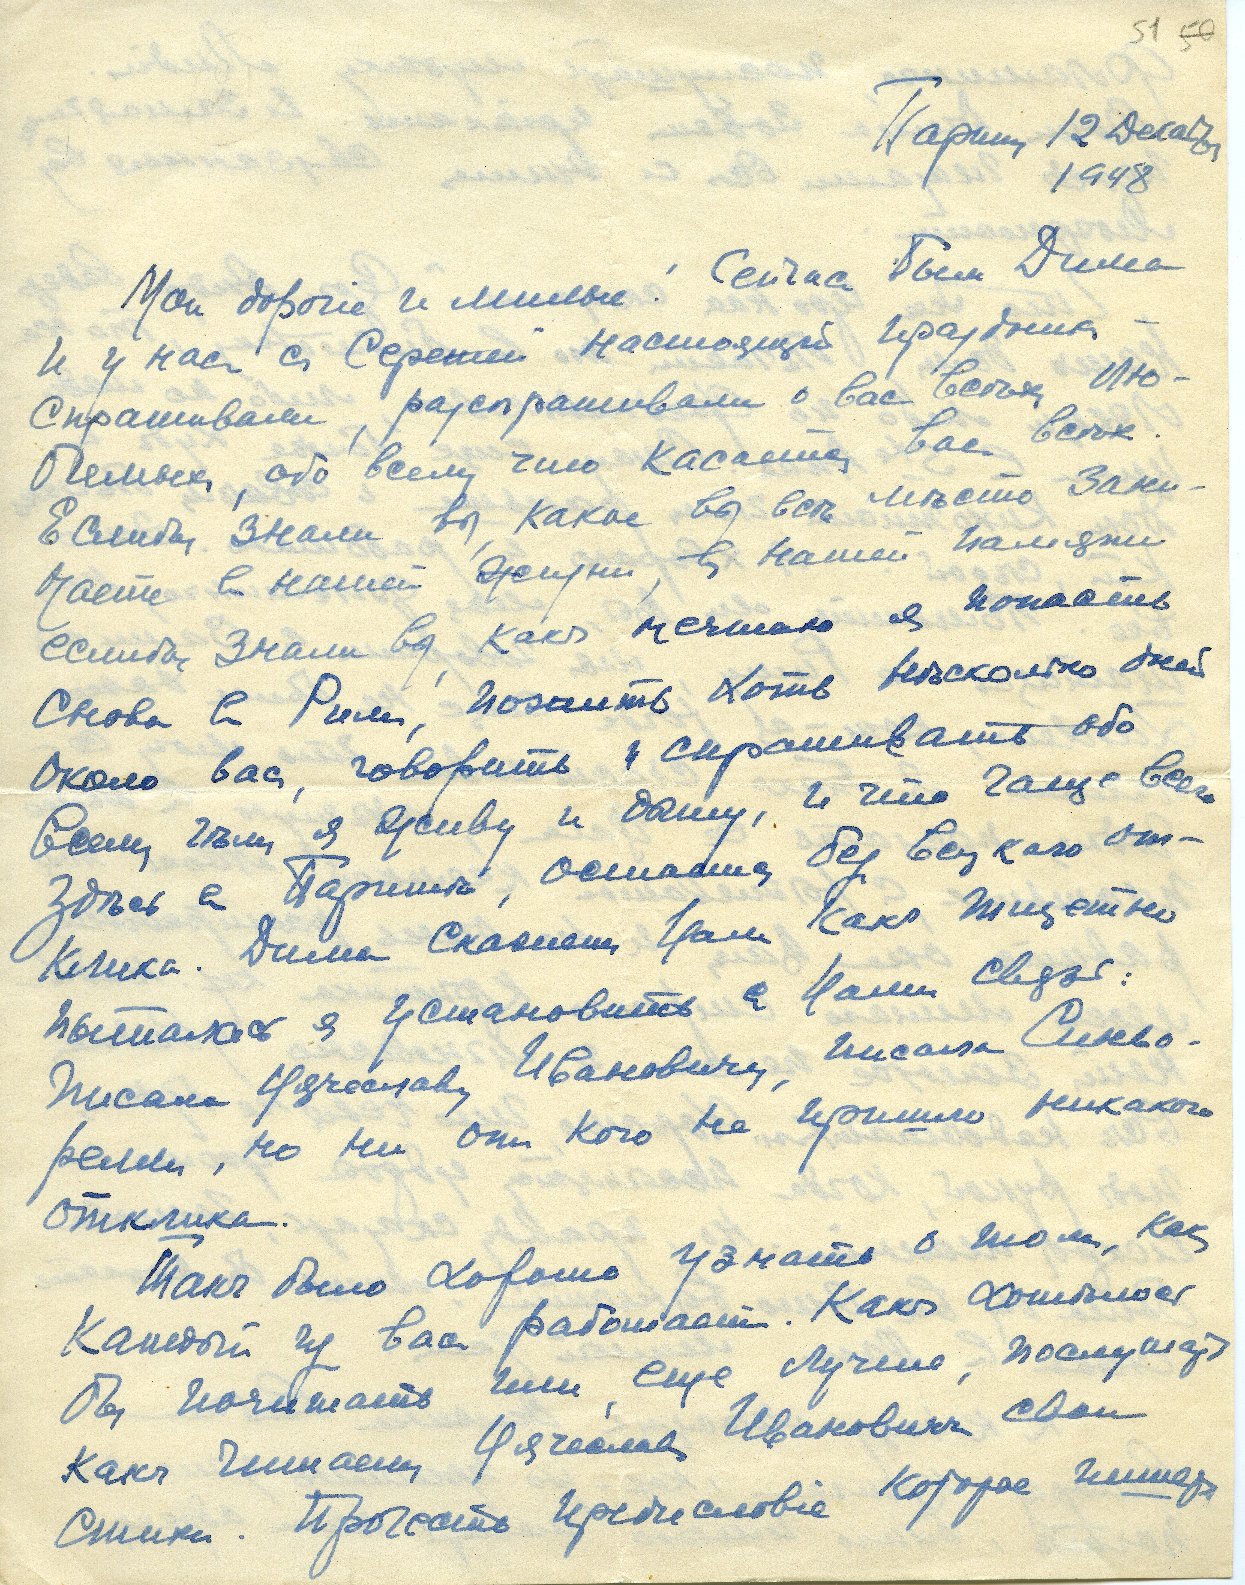 51 50
Париж 12 Декабря
1948
Мои дорогіе и милые! Сейчас был Дима
и у нас с Сережей настоящій праздник –
спрашивали, разспрашивали о вас всѣх, лю-
бимых, обо всем что касается вас всѣх.
Еслибы знали вы, какое вы всѣ мѣсто зани-
маете в нашей жизни, в нашей памяти
еслибы знали вы, какъ мечтаю я попасть
снова в Рим, пожить хоть нѣсколько дней
около вас, говорить и спрашивать обо
всем чѣм я живу и дышу, и что чаще всего
здѣсь в Парижѣ, остается без всякаго от-
клика. Дима скажет Вам какъ тщетно
пыталась я установить с Вами связь:
писала Вячеславу Ивановичу, писала Синьо-
релли, но ни от кого не пришло никакого
отклика.
Такъ было хорошо узнать о том, как
каждый из вас работает. Какъ хотѣлось
бы почитать или, еще лучше, послушать
какъ читает Вячеслав Ивановичъ свои
стихи. Прочесть предисловіе которое пишет